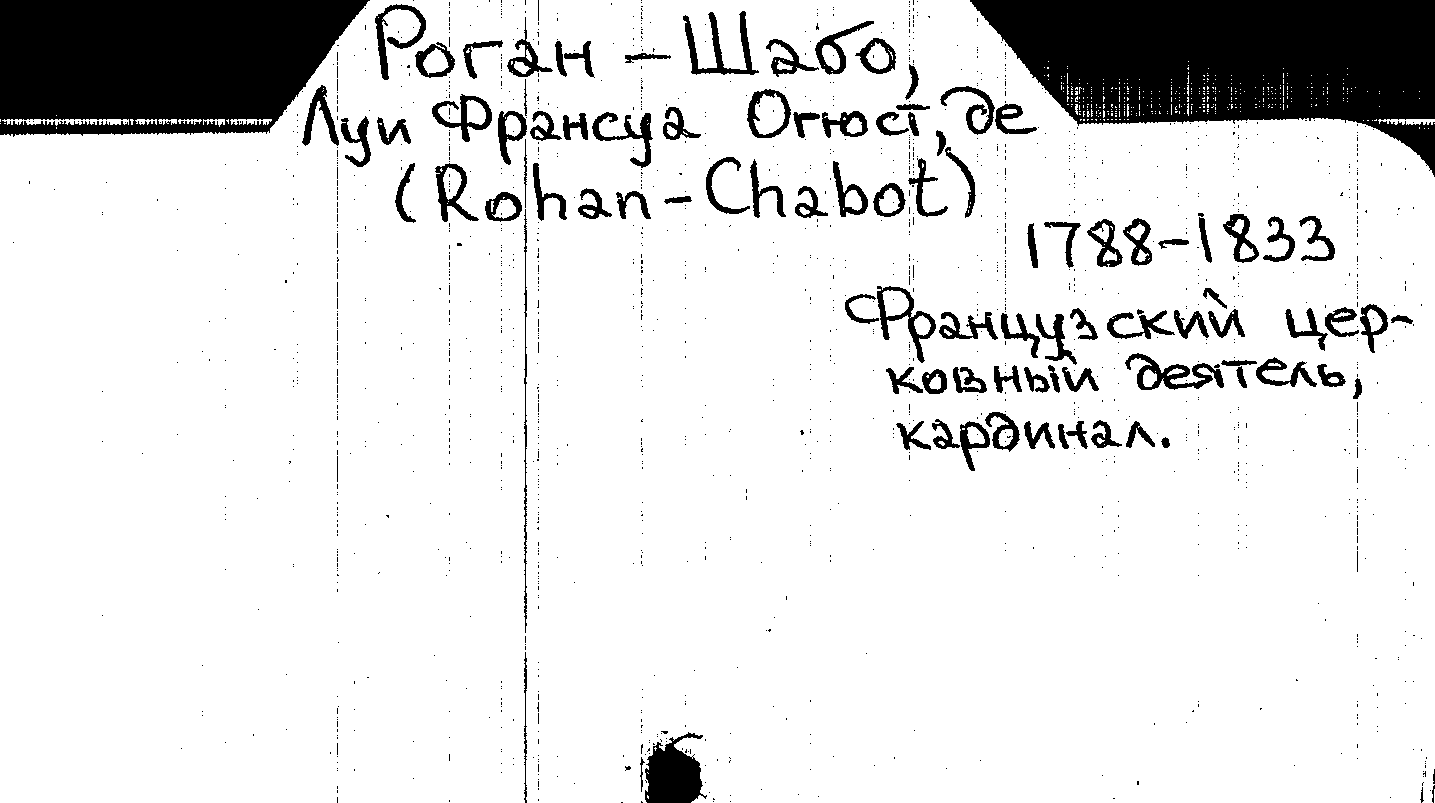 Роган – Шабо,
Луи Франсуа Огюст, де
(Rohan-Chabot)
1788-1833
Французский цер-
ковный деятель,
кардинал.